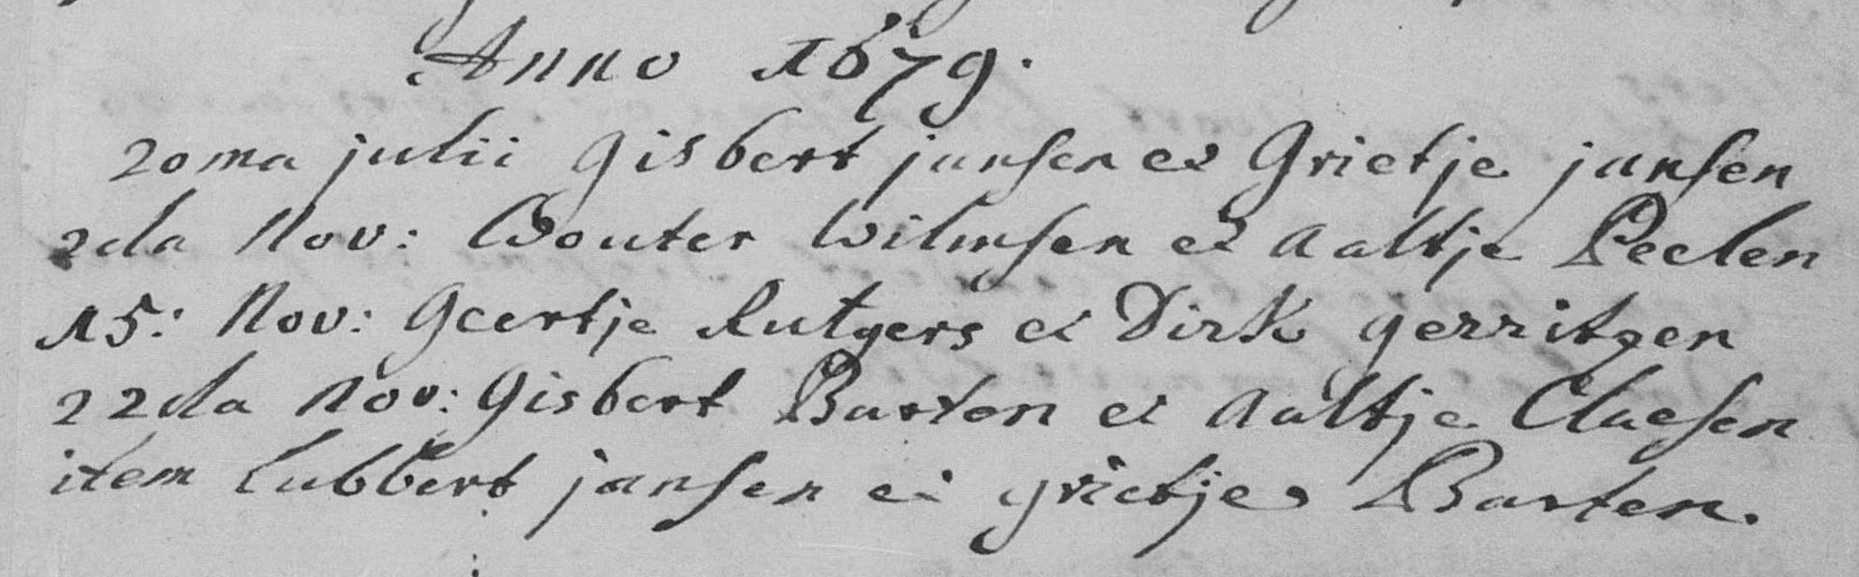 Anno 1679.
20ma julii Gisbert jansen et Grietje jansen
2da Nov: Wouter Wilmsen et Aaltje Peelen
15: Nov: Geertje Rutgers et Dirk gerritzen
22da Nov: Gisbert Barten et Aaltje Claesen
item Lubbert jansen et grietje Barten.